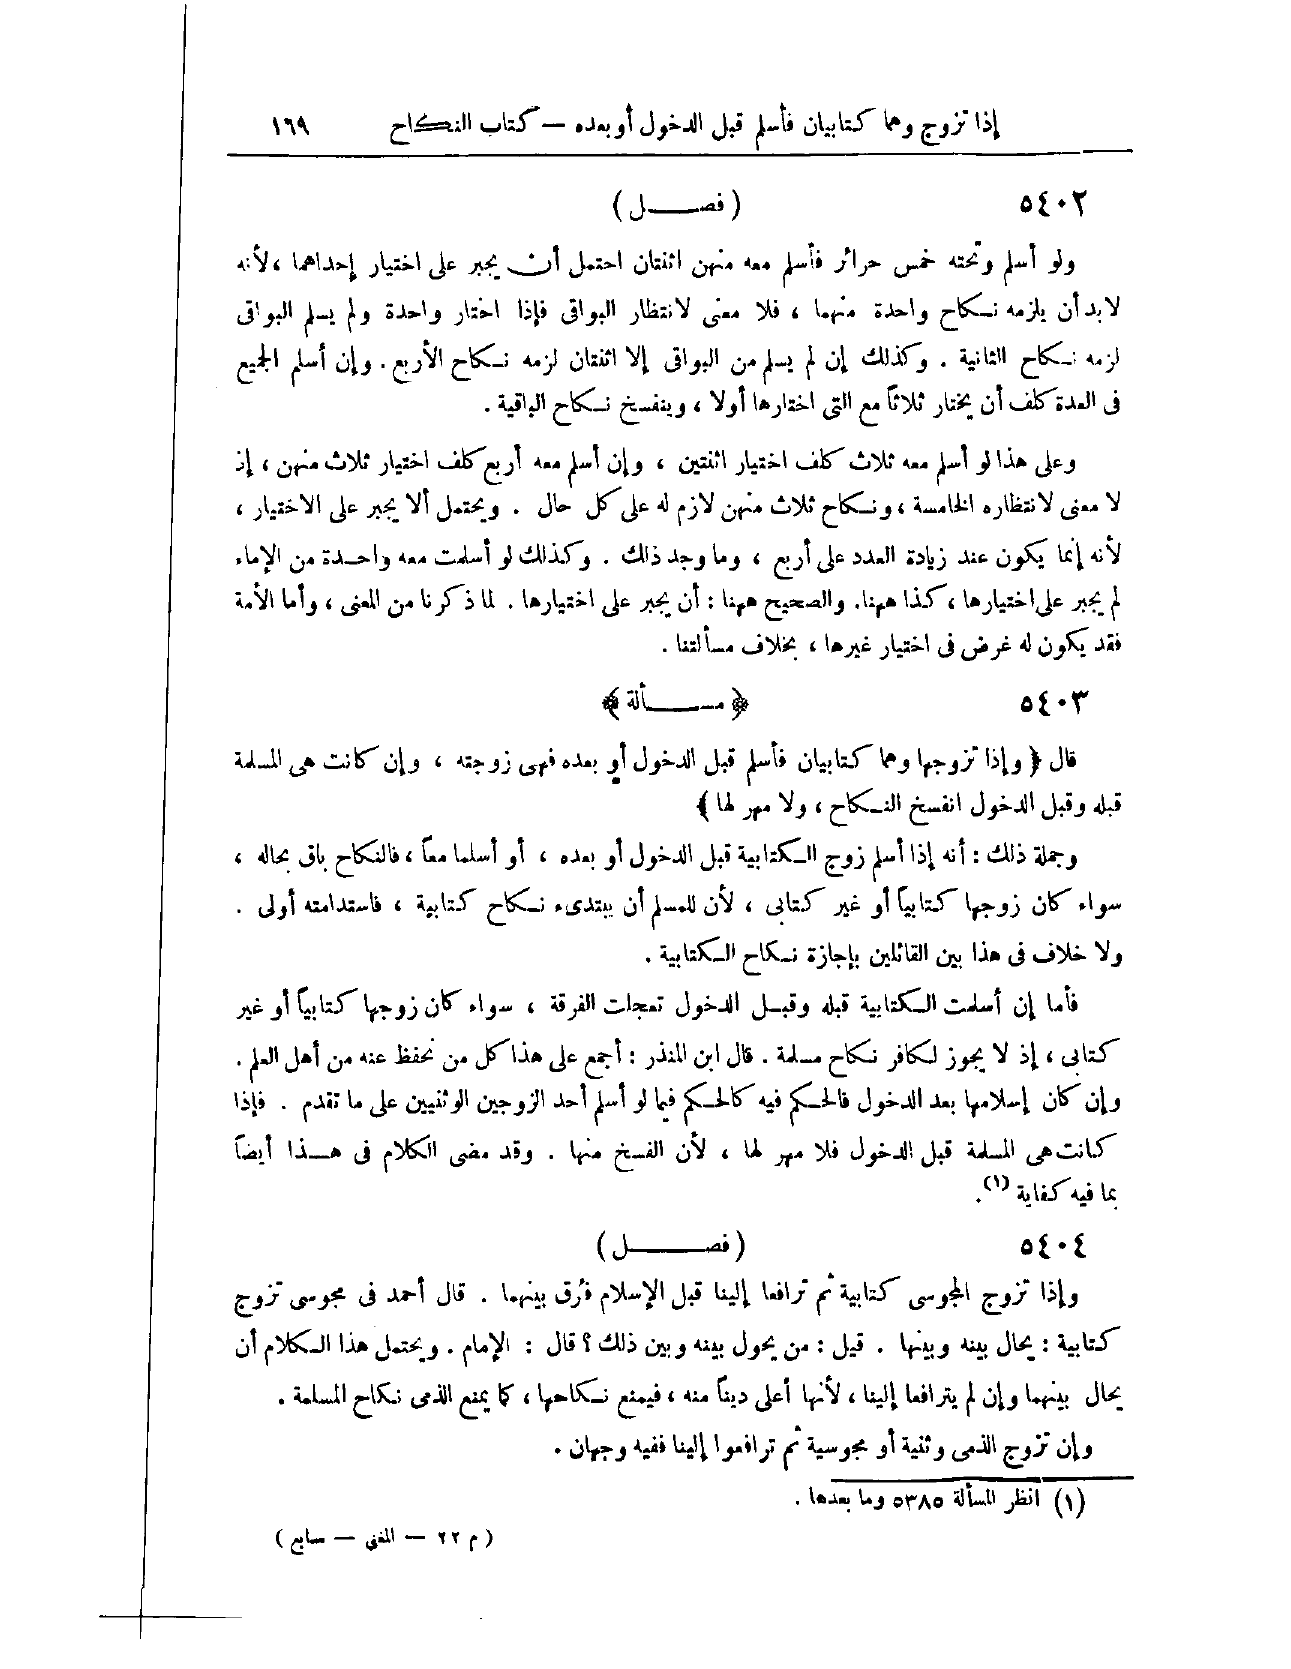 إذا تزوج وهما كتابيان فأسلم قبل الدخول أو بعده — كتاب النكاح ١٦٩
٥٤٠٢ ( فصــــل )
ولو أسلم وتحته خمس حرائر فأسلم معه منهن اثنتان احتمل أن يجبر على اختيار إحداهما ، لأنه
لابد أن يلزمه نكاح واحدة منهما ، فلا معنى لانتظار البواقى فإذا اختار واحدة ولم يسلم البواقى
لزمه نكاح الثانية . وكذلك إن لم يسلم من البواقى إلا اثنتان لزمه نكاح الأربع . وإن أسلم الجميع
فى العدة كلف أن يختار ثلاثاً مع التى اختارها أولا ، وينفسخ نكاح الباقية .
وعلى هذا لو أسلم معه ثلاث كلف اختيار اثنتين ، وإن أسلم معه أربع كلف اختيار ثلاث منهن ، إذ
لا معنى لانتظاره الخامسة ، ونكاح ثلاث منهن لازم له على كل حال . ويحتمل ألا يجبر على الاختيار ،
لأنه إنما يكون عند زيادة العدد على أربع ، وما وجد ذلك . وكذلك لو أسلمت معه واحدة من الإماء
لم يجبر على اختيارها ، كذا ههنا . والصحيح ههنا : أن يجبر على اختيارها . لما ذكرنا من المعنى ، وأما الأمة
فقد يكون له غرض فى اختيار غيرها ، بخلاف مسألتنا .
٥٤٠٣ ﴿ مســـألة ﴾
قال ﴿ وإذا تزوجها وهما كتابيان فأسلم قبل الدخول أو بعده فهى زوجته ، وإن كانت هى المسلمة
قبله وقبل الدخول انفسخ النكاح ، ولا مهر لها ﴾
وجملة ذلك : أنه إذا أسلم زوج الكتابية قبل الدخول أو بعده ، أو أسلما معاً ، فالنكاح باق بحاله ،
سواء كان زوجها كتابياً أو غير كتابى ، لأن للمسلم أن يبتدىء نكاح كتابية ، فاستدامته أولى .
ولا خلاف فى هذا بين القائلين بإجازة نكاح الكتابية .
فأما إن أسلمت الكتابية قبله وقبل الدخول تعجلت الفرقة ، سواء كان زوجها كتابياً أو غير
كتابى ، إذ لا يجوز لكافر نكاح مسلمة . قال ابن المنذر : أجمع على هذا كل من نحفظ عنه من أهل العلم .
وإن كان إسلامها بعد الدخول فالحكم فيه كالحكم فيما لو أسلم أحد الزوجين الوثنيين على ما تقدم . فإذا
كانت هى المسلمة قبل الدخول فلا مهر لها ، لأن الفسخ منها . وقد مضى الكلام فى هذا أيضاً
بما فيه كفاية (١) .
٥٤٠٤ ( فصــــل )
وإذا تزوج المجوسى كتابية ثم ترافعا إلينا قبل الإسلام فُرق بينهما . قال أحمد فى مجوسى تزوج
كتابية : يحال بينه وبينها . قيل : من يحول بينه وبين ذلك ؟ قال : الإمام . ويحتمل هذا الكلام أن
يحال بينهما وإن لم يترافعا إلينا ، لأنها أعلى ديناً منه ، فيمنع نكاحها ، كما يمنع الذمى نكاح المسلمة .
وإن تزوج الذمى وثنية أو مجوسية ثم ترافعوا إلينا ففيه وجهان .
(١) انظر المسألة ٥٣٨٥ وما بعدها .
( م ٢٢ — المغنى — سابع )